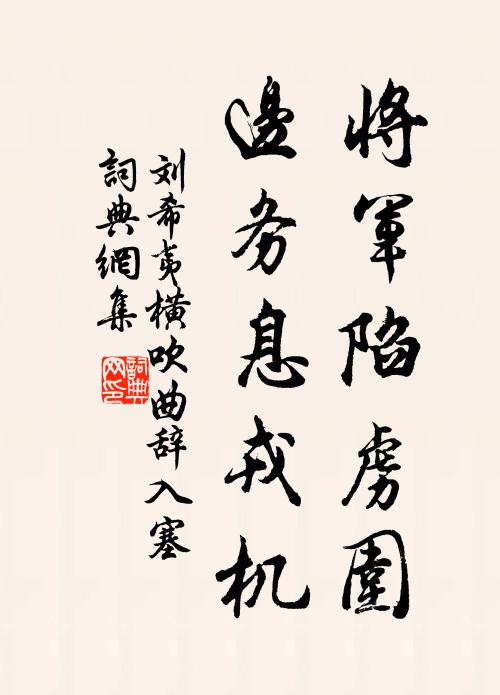 將軍陷虜圍
邊务息戎机
刘希夷橫吹曲辞入塞
詞典網集
詞典网印